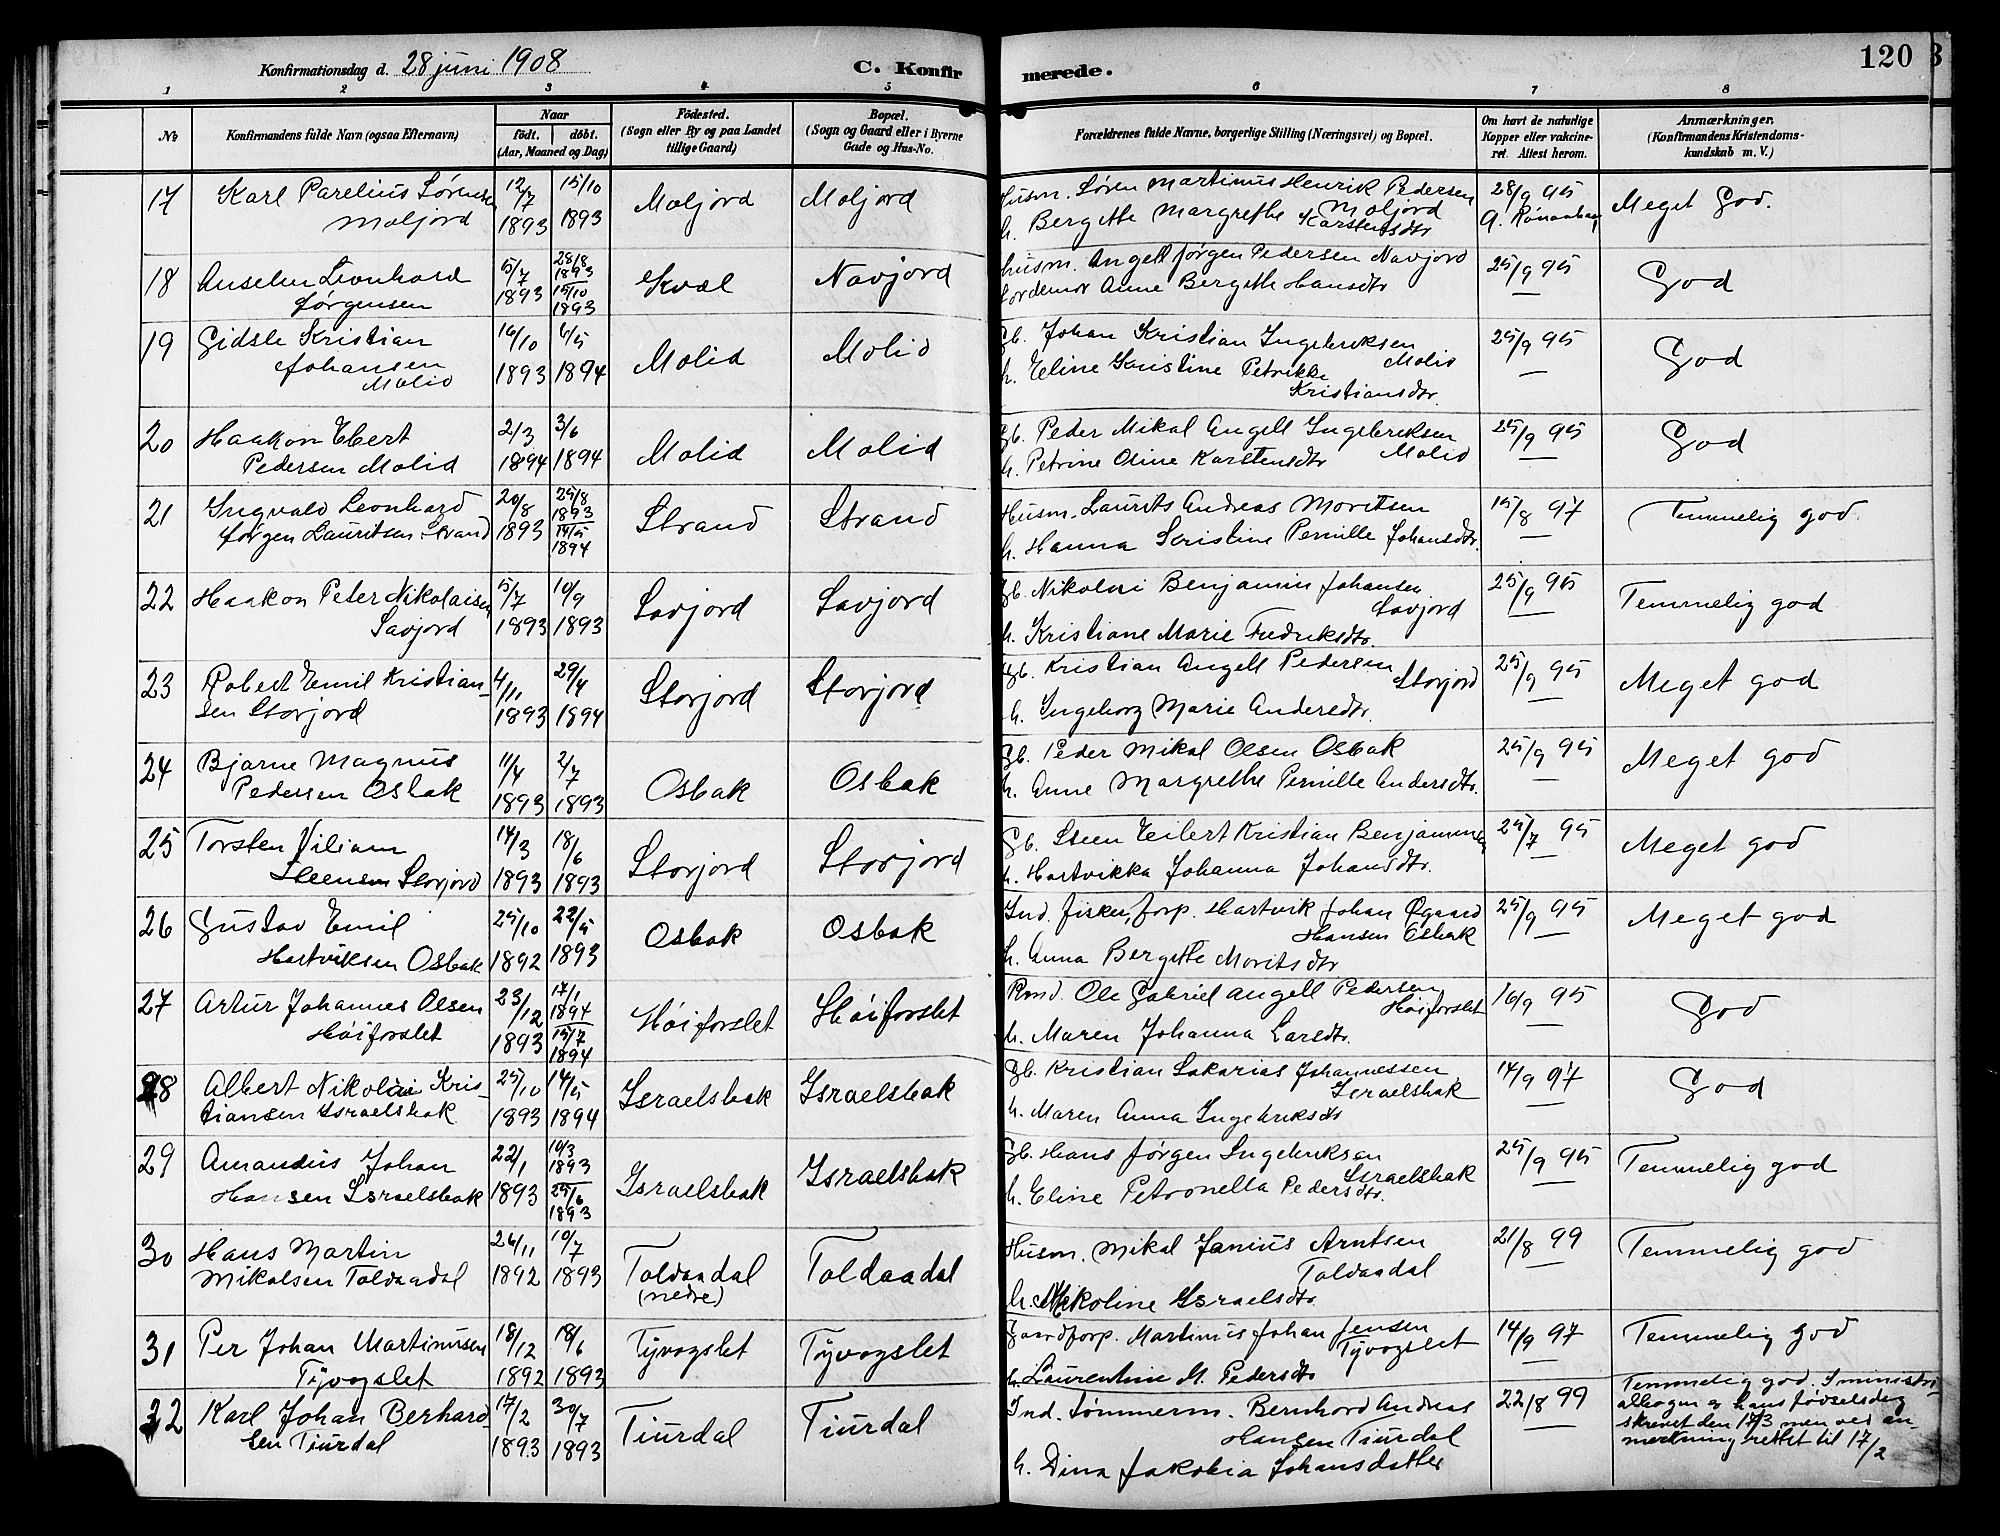 Konfirmationsdag d. 28 juni 1908
C. Konfirmerede.
120
1 2 3 4 5 6 7 8
No
Konfirmandens fulde Navn (ogsaa Efternavn)
Naar
födt. döbt.
(Aar, Maaned og Dag)
Födested.
(Sogn eller By og paa Landet
tillige Gaard)
Bopæl.
(Sogn og Gaard eller i Byerne
Gade og Hus-No.
Forældrenes fulde Navne, borgerlige Stilling (Næringsvei) og Bopæl.
Om havt de naturlige
Kopper eller vakcine-
ret. Attest herom.
Anmærkninger.
(Konfirmandens Kristendoms-
kundskab m. V.)
17 Karl Parelius Sørensen 12/7 15/10 Moljord Moljord Husm. Søren Martinus Henrik Pedersen 28/9 95 Meget God.
Moljord 1893 1893 Moljord
h. Bergitte Margrethe Karstensdtr
18 Anselm Leonhard 5/7 28/8 1893 Kvæl Navjord Husm. Angell Jørgen Pedersen Navjord 25/9 95 God
Jørgensen 1893 15/10 1893 Fordemor Anne Bergitte Hansdtr —
19 Gidsle Kristian 16/10 6/5 Molid Molid Gb. Johan Kristian Ingebriksen 25/9 95 God
Johansen 1893 1894 Molid —
Molid h. Eline Kristine Petrikke
Kristiansdtr.
20 Haakon Ebert 2/3 3/6 Molid Molid Gb. Peder Mikal Angell Ingebriksen 25/9 95 God
Pedersen Molid 1894 1894 h. Petrine Oline Karstensdtr Molid —
21 Ingvald Leonhard 20/8 29/8 1893 Strand Strand Husm. Laurits Andreas Moritsen 15/8 97 Temmelig god.
Jørgen Lauritsen Strand 1893 14/5 1894 h. Hanna Kristine Pernille Johansdtr. —
22 Haakon Peter Nikolaisen 5/7 10/9 Savjord Savjord Gb. Nikolai Benjamin Johansen 25/9 95 Temmelig god
Savjord 1893 1893 Savjord —
h. Kristiane Marie Fredriksdtr.
23 Robert Emil Kristian- 4/11 29/4 Storjord Storjord Gb. Kristian Angell Pedersen 25/9 95 Meget god
sen Storjord 1893 1894 Storjord —
h. Ingeborg Marie Andersdtr.
24 Bjarne Magnus 11/4 2/7 Osbak Osbak Gb. Peder Mikal Olsen Osbak 25/9 95 Meget god
Pedersen Osbak 1893 1893 h. Anne Margrethe Pernille Andersdtr. —
25 Torsten Viliam 14/3 18/6 Storjord Storjord Gb. Steen Eilert Kristian Benjaminsen 25/7 95 Meget god
Steensen Storjord 1893 1893 h. Hartvikka Johanna Johansdtr. —
26 Gustav Emil 25/10 22/5 Osbak Osbak Ind. fisker, forp. Hartvik Johan Øgaard 25/9 95 Meget god
Hartviksen Osbak 1892 1893 Hansen Osbak —
h. Anna Bergitte Moritsdtr
27 Artur Johannes Olsen 23/12 17/1 1894 Høiforslet Høiforslet Rmd. Ole Gabriel Angell Pedersen 16/9 95 God
Høiforslet 1893 15/7 1894 Høiforslet —
h. Maren Johanna Larsdtr.
28 Albert Nikolai Kris- 25/10 14/5 Israelsbak Israelsbak Gb. Kristian Sakarias Johannessen 14/9 97 God
tiansen Israelsbak 1893 1894 Israelsbak —
h. Maren Anna Ingebriksdtr
29 Amandus Johan 22/1 10/3 1893 Israelsbak Israelsbak Gb. Hans Jørgen Ingebriksen 25/9 95 Temmelig god
Hansen Israelsbak 1893 25/6 1893 Israelsbak —
h. Eline Petronella Pedersdtr.
30 Hans Martin 26/11 10/7 Toldaadal Toldaadal Husm. Mikal Janius Arntsen 21/8 99 Temmelig god
Mikalsen Toldaadal 1892 1893 (nedre) Toldaadal —
h. Nikoline Israelsdtr.
31 Per Johan Martinusen 18/12 18/6 Tyvogslet Tyvogslet Gaardforp. Martinus Johan Jensen 14/9 97 Temmelig god
Tyvogslet 1892 1893 Tyvogslet —
h. Laurentine M. Pedersdtr
32 Karl Johan Berhard- 17/2 30/7 Tiurdal Tiurdal Ind. tømmerm. Bernhard Andreas 22/8 99 Temmelig god. I ministri-
sen Tiurdal 1893 1893 Hansen Tiurdal — albogen er hans fødselsdag
h. Dina Jakobia Johansdatter skrevet den 17/3 men ved an-
mærkning rettet til 17/2